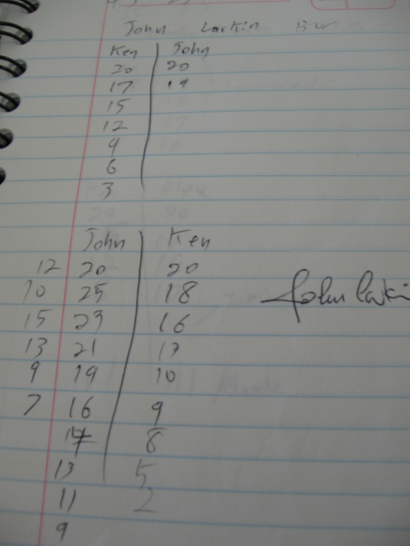 John Larkin
Ken John
20 20
17 19
15
12
9
6
3
John Ken
12 20 20
10 25 18
15 23 16
13 21 13
9 19 10
7 16 9
8
13 5
11 2
9
John Larkin